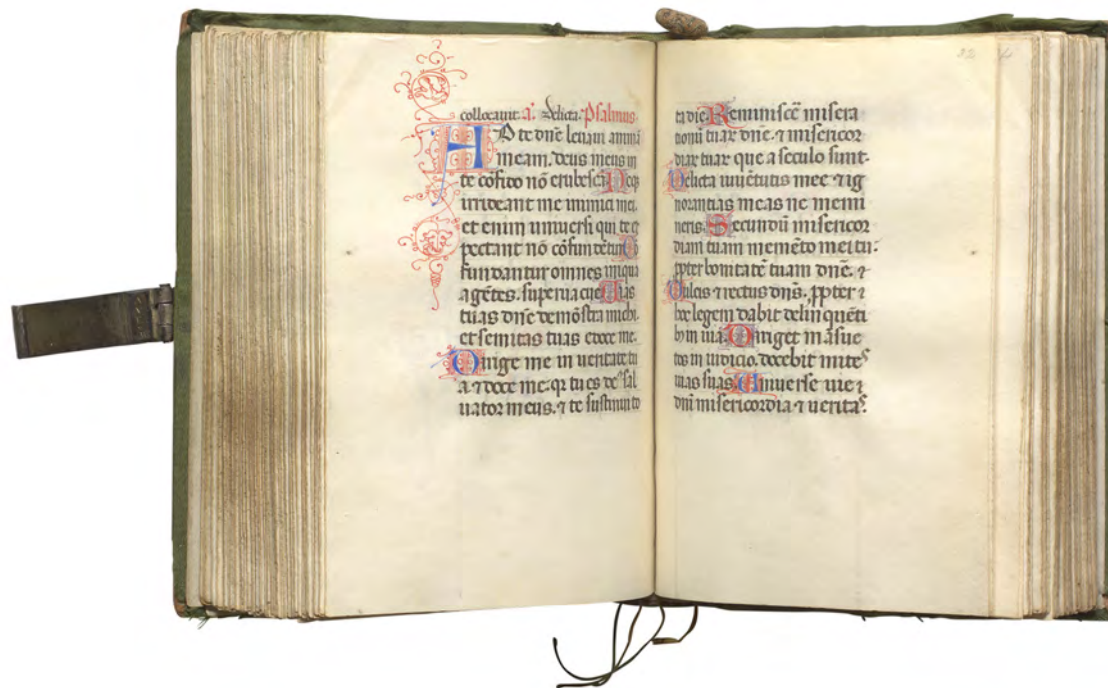 collocavit. a. Delicta. Psalmus.
AD te dnē levavi animā
meam. deus meus in
te cōfido nō erubescā. Neq;
irrideant me inimici mei.
et enim universi qui te ex
pectant nō cōfundētur. Cō
fundantur omnes iniqua
agētes. supervacue. Vias
tuas dnē demōstra michi.
et semitas tuas edoce me.
Dirige me in veritate tu
a ⁊ doce me. qr tu es de⁹ sal
vator meus. ⁊ te sustinui to
32
ta die. Reminiscē misera
tionū tuar dnē. ⁊ misericor
diar tuar que a seculo sunt.
Delicta iuvētutis mee ⁊ ig
norantias meas ne memi
neris. Secundū misericor
diam tuam memēto mei tu.
ppter bonitatē tuam dnē. ⁊
Dulcis ⁊ rectus dns̄. ppter ⁊
hoc legem dabit delinquēti
b; in via. Diriget māsue
tos in iudicio. docebit mites
vias suas. Universe vie ⁊
dnī misericordia ⁊ veritas.